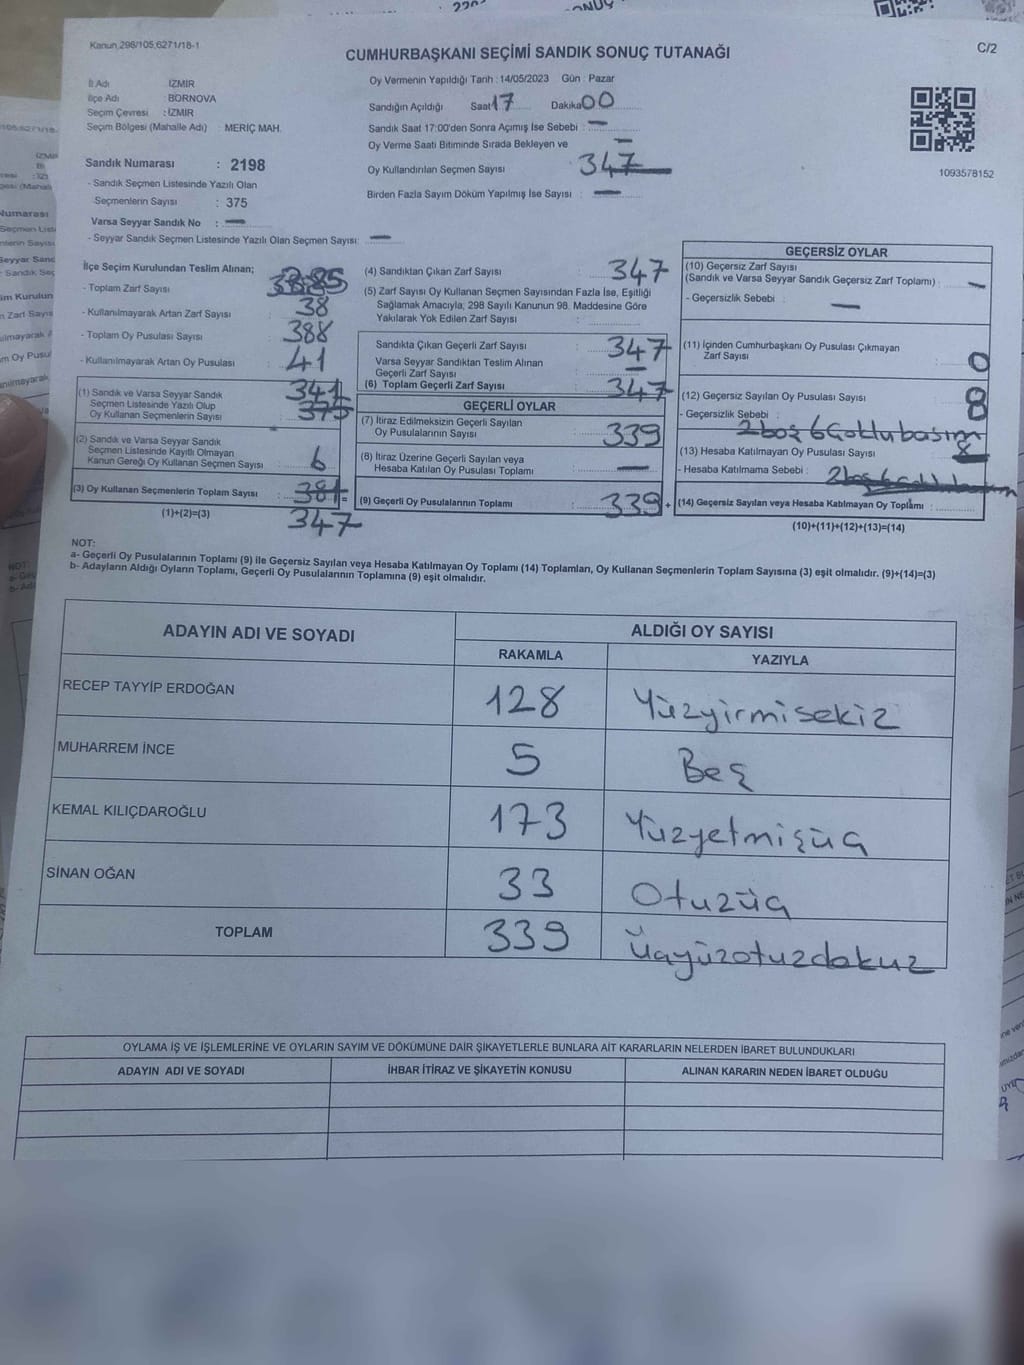 Kanun,298/105,6271/18-1
C/2
CUMHURBAŞKANI SEÇİMİ SANDIK SONUÇ TUTANAĞI
İl Adı : İZMİR
İlçe Adı : BORNOVA
Seçim Çevresi : İZMİR
Seçim Bölgesi (Mahalle Adı) : MERİÇ MAH.
Sandık Numarası : 2198
- Sandık Seçmen Listesinde Yazılı Olan
Seçmenlerin Sayısı : 375
Varsa Seyyar Sandık No : —
- Seyyar Sandık Seçmen Listesinde Yazılı Olan Seçmen Sayısı: —
Oy Vermenin Yapıldığı Tarih : 14/05/2023 Gün : Pazar
Sandığın Açıldığı Saat 17 Dakika 00
Sandık Saat 17:00'den Sonra Açımış İse Sebebi : —
Oy Verme Saati Bitiminde Sırada Bekleyen ve —
Oy Kullandırılan Seçmen Sayısı 347
Birden Fazla Sayım Döküm Yapılmış İse Sayısı : —
1093578152
İlçe Seçim Kurulundan Teslim Alınan;
- Toplam Zarf Sayısı : 385
- Kullanılmayarak Artan Zarf Sayısı : 38
- Toplam Oy Pusulası Sayısı : 388
- Kullanılmayarak Artan Oy Pusulası : 41
(1) Sandık ve Varsa Seyyar Sandık
Seçmen Listesinde Yazılı Olup
Oy Kullanan Seçmenlerin Sayısı : 341
375
(2) Sandık ve Varsa Seyyar Sandık
Seçmen Listesinde Kayıtlı Olmayan
Kanun Gereği Oy Kullanan Seçmen Sayısı : 6
(3) Oy Kullanan Seçmenlerin Toplam Sayısı : 381 =
(1)+(2)=(3) 347
(4) Sandıktan Çıkan Zarf Sayısı : 347
(5) Zarf Sayısı Oy Kullanan Seçmen Sayısından Fazla İse, Eşitliği
Sağlamak Amacıyla, 298 Sayılı Kanunun 98. Maddesine Göre
Yakılarak Yok Edilen Zarf Sayısı :
Sandıkta Çıkan Geçerli Zarf Sayısı : 347
Varsa Seyyar Sandıktan Teslim Alınan
Geçerli Zarf Sayısı : —
(6) Toplam Geçerli Zarf Sayısı : 347
GEÇERLİ OYLAR
(7) İtiraz Edilmeksizin Geçerli Sayılan
Oy Pusulalarının Sayısı : 339
(8) İtiraz Üzerine Geçerli Sayılan veya
Hesaba Katılan Oy Pusulası Toplamı : —
(9) Geçerli Oy Pusulalarının Toplamı : 339 +
GEÇERSİZ OYLAR
(10) Geçersiz Zarf Sayısı
(Sandık ve Varsa Seyyar Sandık Geçersiz Zarf Toplamı) : —
- Geçersizlik Sebebi : —
(11) İçinden Cumhurbaşkanı Oy Pusulası Çıkmayan
Zarf Sayısı : 0
(12) Geçersiz Sayılan Oy Pusulası Sayısı : 8
- Geçersizlik Sebebi : 2 boş 6 çoklu basım
(13) Hesaba Katılmayan Oy Pusulası Sayısı : 8
- Hesaba Katılmama Sebebi : 2 boş 6 çoklu basım
(14) Geçersiz Sayılan veya Hesaba Katılmayan Oy Toplamı :
(10)+(11)+(12)+(13)=(14)
NOT:
a- Geçerli Oy Pusulalarının Toplamı (9) ile Geçersiz Sayılan veya Hesaba Katılmayan Oy Toplamı (14) Toplamları, Oy Kullanan Seçmenlerin Toplam Sayısına (3) eşit olmalıdır. (9)+(14)=(3)
b- Adayların Aldığı Oyların Toplamı, Geçerli Oy Pusulalarının Toplamına (9) eşit olmalıdır.
ADAYIN ADI VE SOYADI
ALDIĞI OY SAYISI
RAKAMLA YAZIYLA
RECEP TAYYİP ERDOĞAN 128 Yüzyirmisekiz
MUHARREM İNCE 5 Beş
KEMAL KILIÇDAROĞLU 173 Yüzyetmişüç
SİNAN OĞAN 33 Otuzüç
TOPLAM 339 Üçyüzotuzdokuz
OYLAMA İŞ VE İŞLEMLERİNE VE OYLARIN SAYIM VE DÖKÜMÜNE DAİR ŞİKAYETLERLE BUNLARA AİT KARARLARIN NELERDEN İBARET BULUNDUKLARI
ADAYIN ADI VE SOYADI İHBAR İTİRAZ VE ŞİKAYETİN KONUSU ALINAN KARARIN NEDEN İBARET OLDUĞU